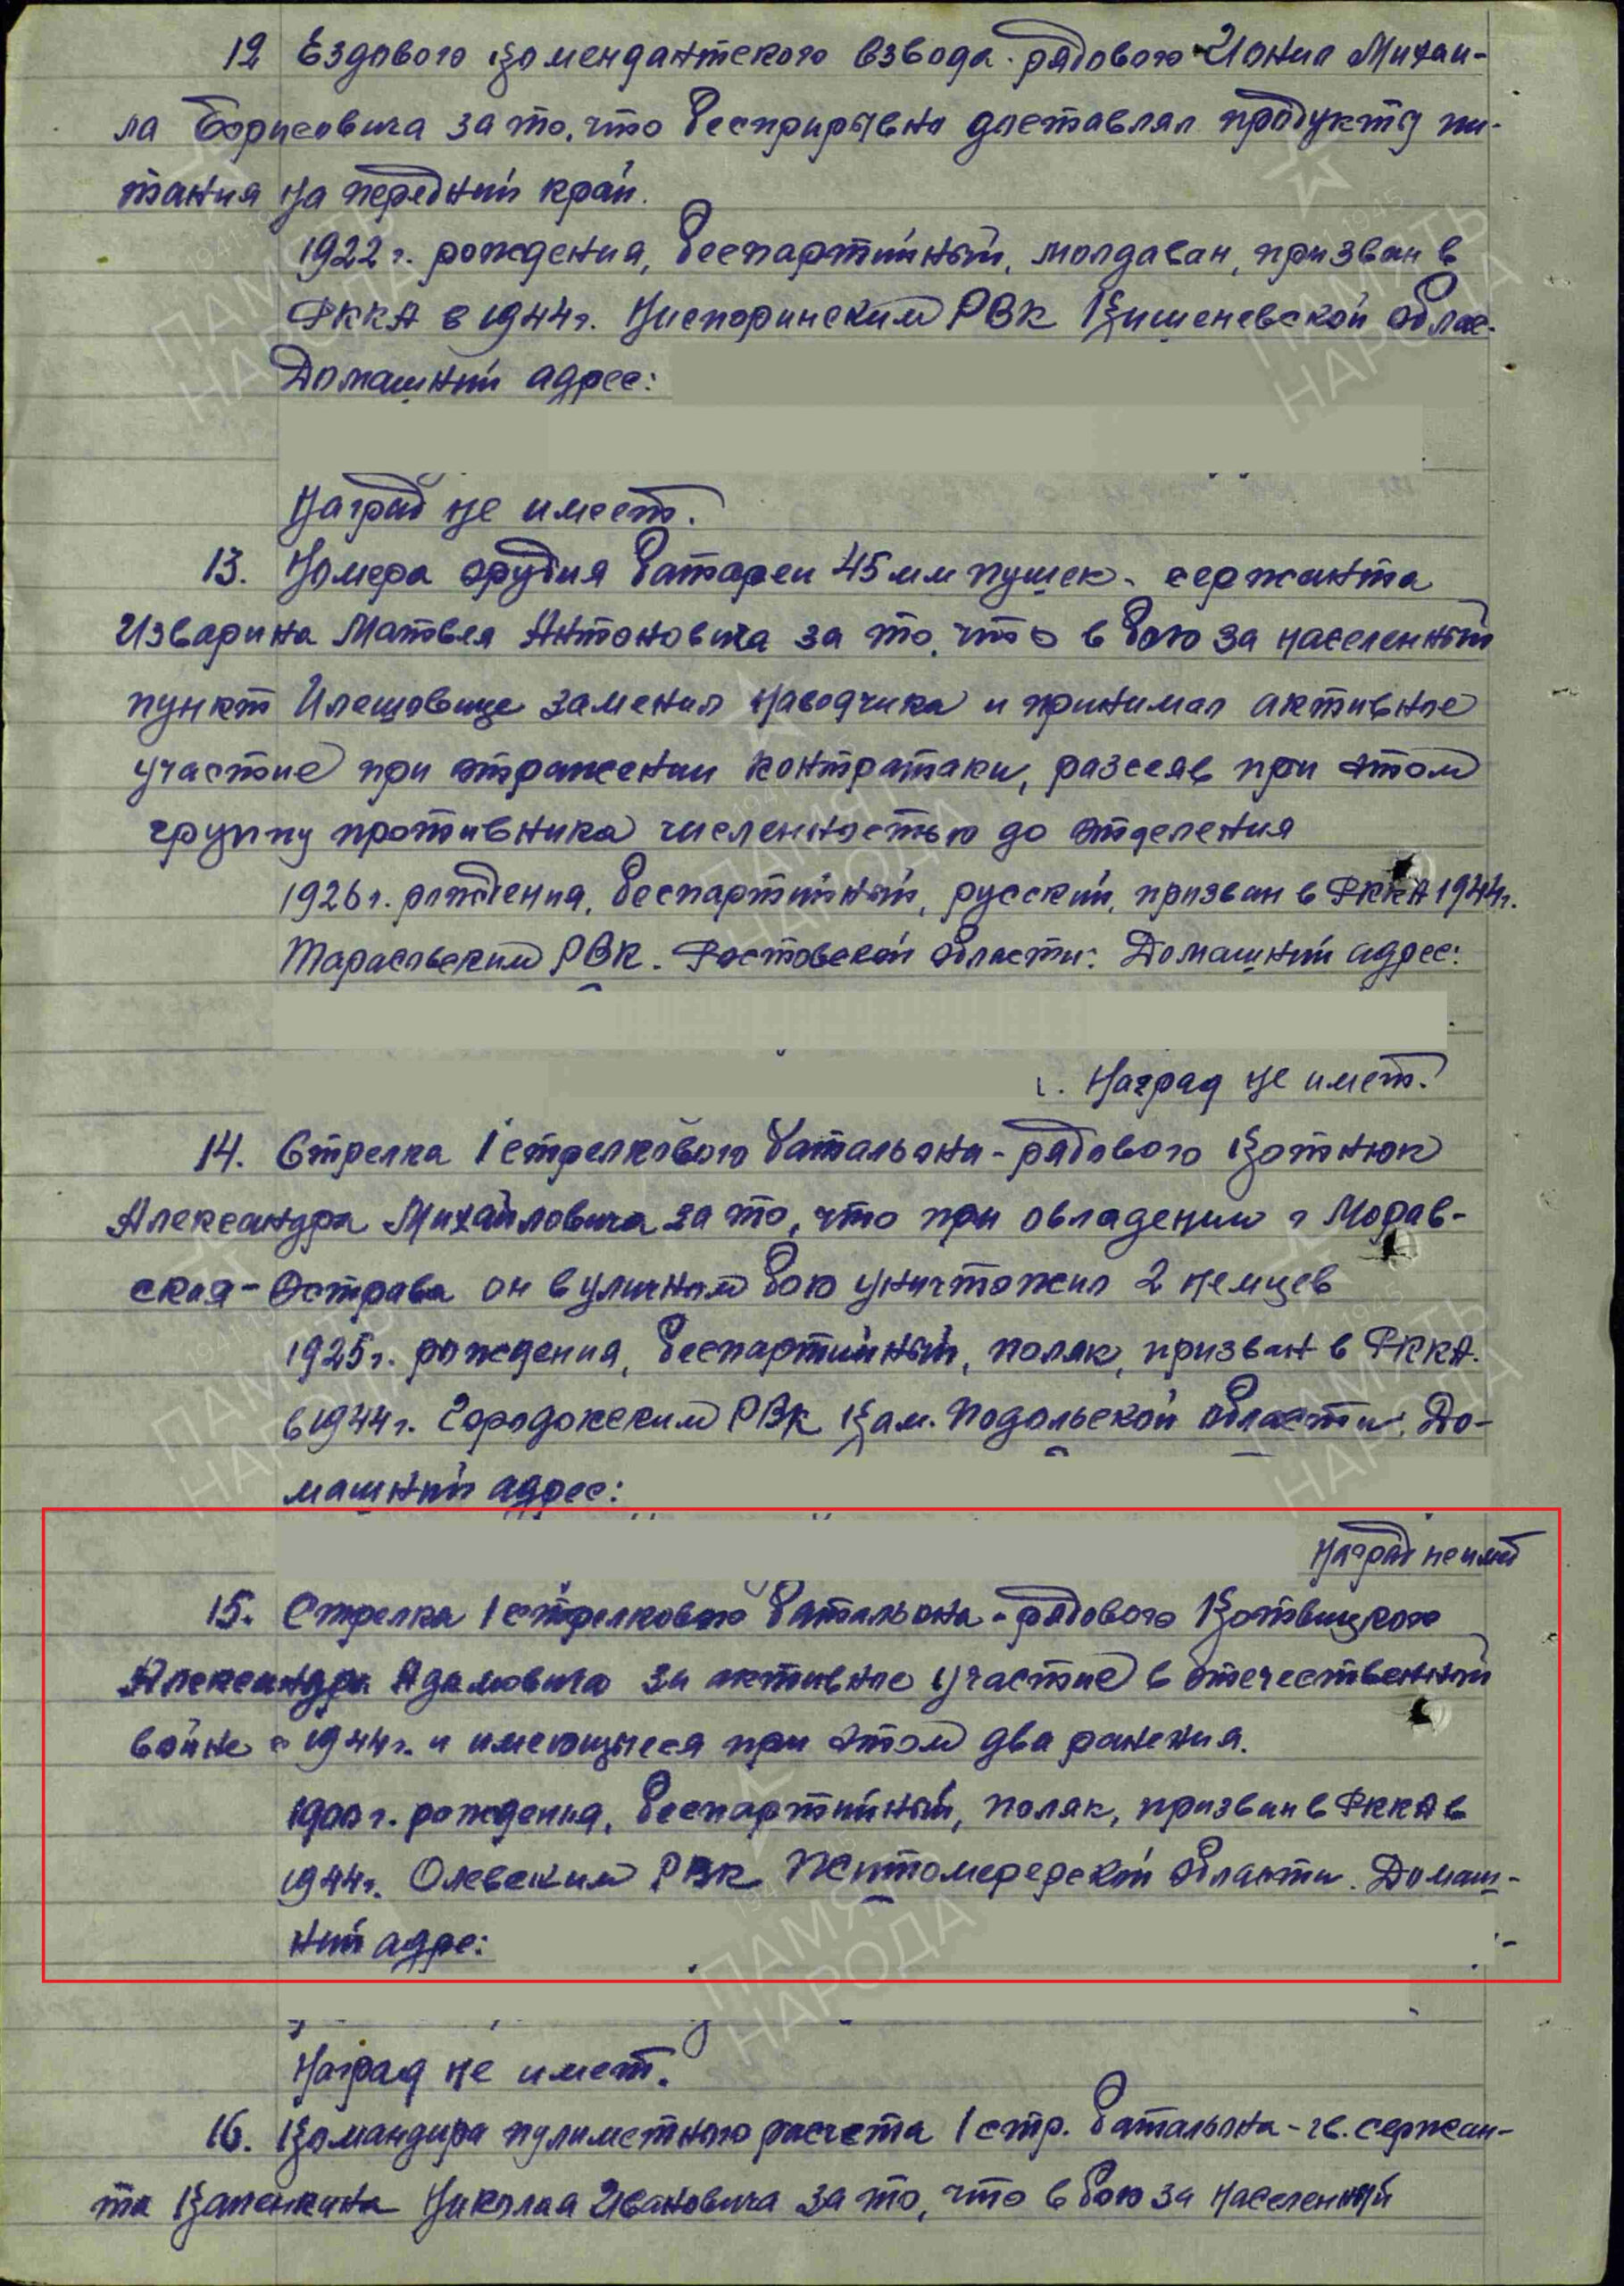 12 Ездового комендантского взвода - рядового Ионил Михаи-
ла Борисовича за то, что бесприрывно доставлял продукты пи-
тания на передний край.
1922 г. рождения, беспартийный, молдаван, призван в
РККА в 1944г. Ниспоринским РВК Кишеневской облас.
Домашний адрес:
Наград не имеет.
13. Номера орудия батареи 45 мм пушек - сержанта
Изварина Матвея Антоновича за то, что в бою за населенный
пункт заменил наводчика и принимал активное
участие при отражении контратаки, разсеяв при этом
группу противника численностью до отделения
1926 г. рождения, беспартийный, русский, призван в РККА 1944г.
Тарасовским РВК. Ростовской области. Домашний адрес:
Наград не имет.
14. Стрелка 1 стрелкового батальона - рядового Котнюк
Александра Михайловича за то, что при овладении г Морав-
ская-Острава он в уличном бою уничтожил 2 немцев
1925 г. рождения, беспартийный, поляк, призван в РККА.
в 1944г. Городокским РВК Кам. Подольской области. До-
машний адрес:
Наград не имет
15. Стрелка 1 стрелкового батальона - рядового Котвицкого
Александра Адамовича за активное участие в отечественной
войне с 1944г. и имеющиеся при этом два ранения.
1900 г. рождения, беспартийный, поляк, призван в РККА в
1944г. Олевским РВК области. Домаш-
ний адре:
Наград не имет.
16. Командира пулиметного расчета 1 стр. батальона - гв. сержан-
та Капенкина Николая Ивановича за то, что в бою за населенный
ПАМЯТЬ
НАРОДА
1941-1945